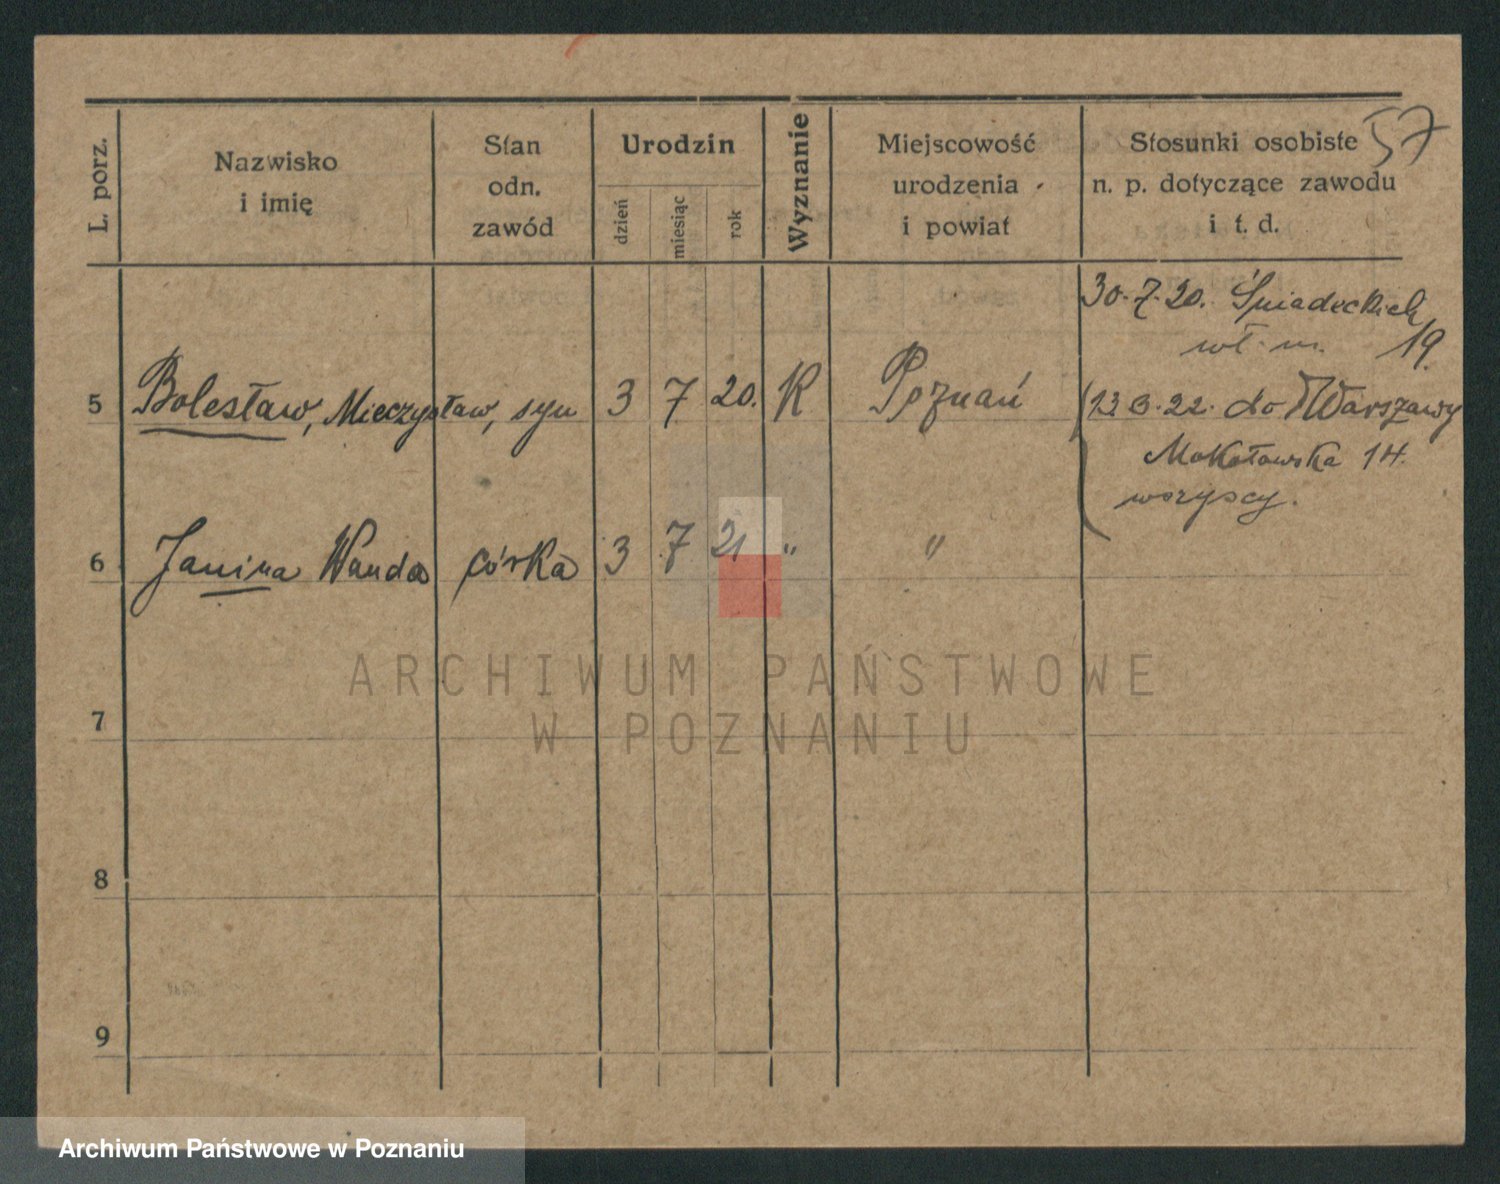 57
L. porz.
Nazwisko
i imię
Stan
odn.
zawód
Urodzin
dzień
miesiąc
rok
Wyznanie
Miejscowość
urodzenia
i powiat
Stosunki osobiste
n. p. dotyczące zawodu
i t. d.
30.7.20. Śniadeckich
wł. m. 19.
5 Bolesław, Mieczysław, syn 3 7 20. K Poznań 13 6.22. do Warszawy
Mokotowska 14.
wszyscy.
6 Janina Wanda córka 3 7 21 " "
7
8
9
ARCHIWUM PAŃSTWOWE
W POZNANIU
Archiwum Państwowe w Poznaniu